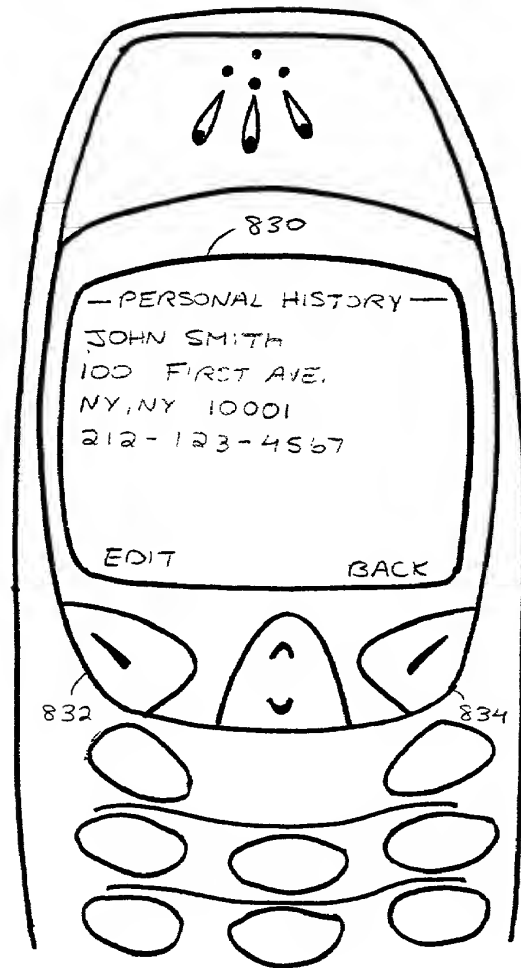 830
— PERSONAL HISTORY —
JOHN SMITH
100 FIRST AVE.
NY, NY 10001
212-123-4567
EDIT BACK
832 834